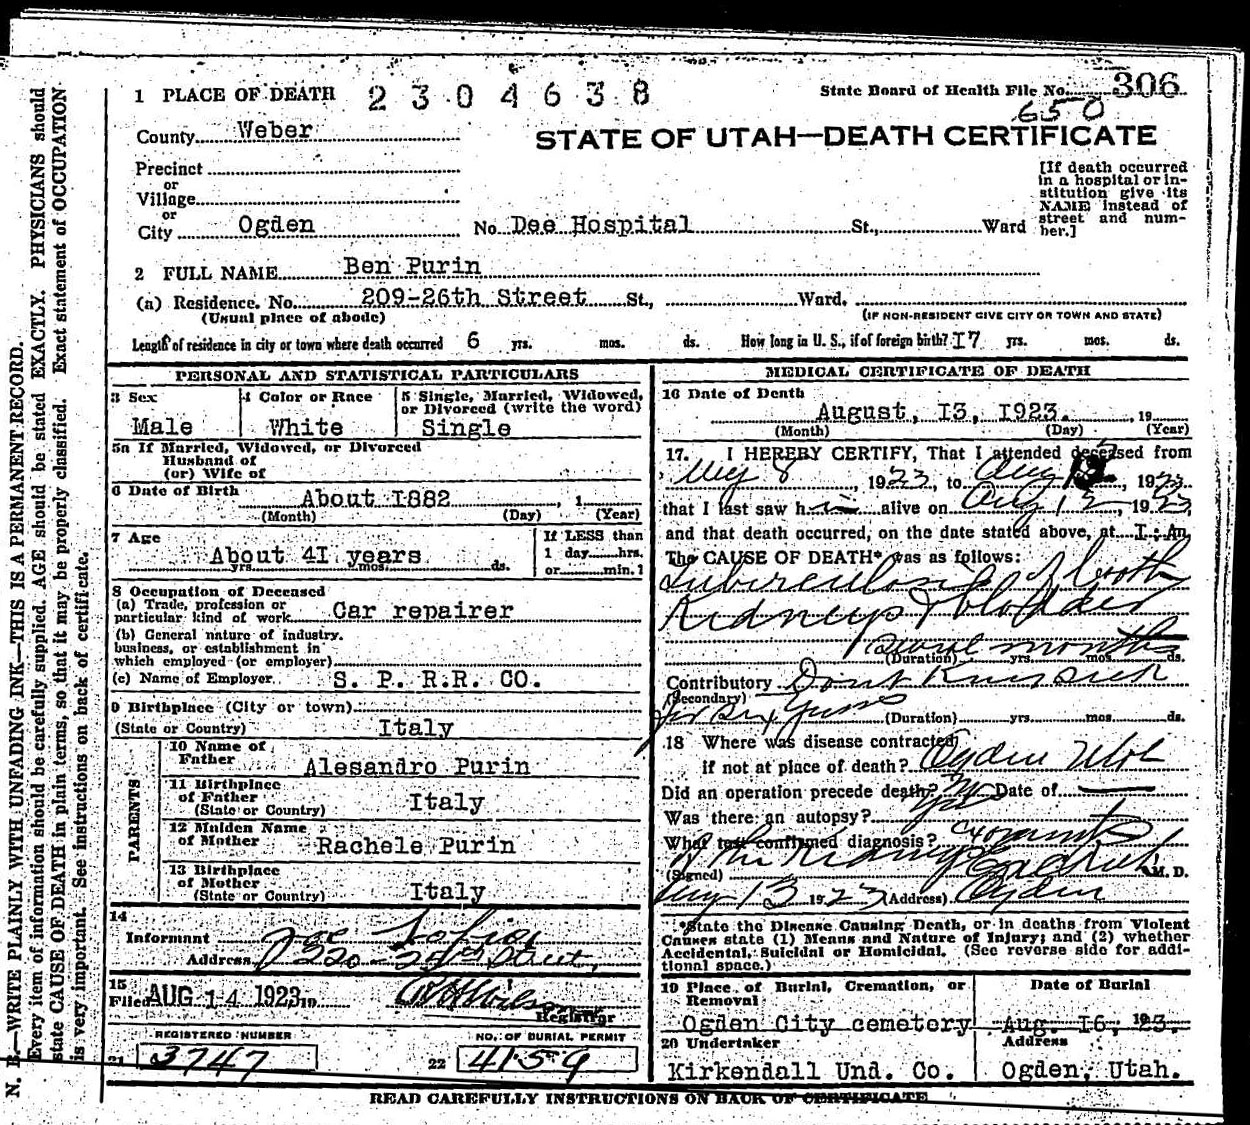 N. B.—WRITE PLAINLY WITH UNFADING INK—THIS IS A PERMANENT RECORD.
Every item of information should be carefully supplied. AGE should be stated EXACTLY. PHYSICIANS should
state CAUSE OF DEATH in plain terms, so that it may be properly classified. Exact statement of OCCUPATION
is very important. See instructions on back of certificate.
1 PLACE OF DEATH 2304638
State Board of Health File No. 306
650
County Weber
STATE OF UTAH—DEATH CERTIFICATE
Precinct
or
Village
or
City Ogden No. Dee Hospital St., Ward
[If death occurred
in a hospital or in-
stitution give its
NAME instead of
street and num-
ber.]
2 FULL NAME Ben Purin
(a) Residence. No. 209-26th Street St., Ward.
(Usual place of abode) (IF NON-RESIDENT GIVE CITY OR TOWN AND STATE)
Length of residence in city or town where death occurred 6 yrs. mos. ds. How long in U. S., if of foreign birth? I7 yrs. mos. ds.
PERSONAL AND STATISTICAL PARTICULARS
3 Sex
Male
4 Color or Race
White
5 Single, Married, Widowed,
or Divorced (write the word)
Single
5a If Married, Widowed, or Divorced
Husband of
(or) Wife of
6 Date of Birth About I882, 1
(Month) (Day) (Year)
7 Age
About 4I years
yrs. mos. ds.
If LESS than
1 day hrs.
or min.
8 Occupation of Deceased
(a) Trade, profession or
particular kind of work Car repairer
(b) General nature of industry,
business, or establishment in
which employed (or employer)
(c) Name of Employer S. P. R.R. CO.
9 Birthplace (City or town)
(State or Country) Italy
PARENTS
10 Name of
Father Alesandro Purin
11 Birthplace
of Father
(State or Country) Italy
12 Maiden Name
of Mother Rachele Purin
13 Birthplace
of Mother
(State or Country) Italy
14
Informant Joe
Address 220 - Street,
15
Filed AUG 14 1923, 19
Registrar
REGISTERED NUMBER
21 3747
NO. OF BURIAL PERMIT
22 4159
MEDICAL CERTIFICATE OF DEATH
16 Date of Death
August, I3, I923. , 19
(Month) (Day) (Year)
17. I HEREBY CERTIFY, That I attended deceased from
8, 1923, to Aug, 1923
that I last saw h alive on Aug 12, 1923,
and that death occurred, on the date stated above, at I:A
The CAUSE OF DEATH* was as follows:
Tuberculosis of both
Kidneys & bladder
months
(Duration) yrs. mos. ds.
Contributory Dont Know Sick
(Secondary)
for Six Years
(Duration) yrs. mos. ds.
18 Where was disease contracted
if not at place of death? Ogden Utah
Did an operation precede death? No Date of
Was there an autopsy? Yes
What test confirmed diagnosis?
of the Kidneys
(Signed) M. D.
Aug 13 1923 (Address) Ogden
*State the Disease Causing Death, or in deaths from Violent
Causes state (1) Means and Nature of Injury; and (2) whether
Accidental, Suicidal or Homicidal. (See reverse side for addi-
tional space.)
19 Place of Burial, Cremation, or
Removal
Ogden City cemetery
Date of Burial
Aug. I6, 1923.
20 Undertaker
Kirkendall Und. Co.
Address
Ogden, Utah.
READ CAREFULLY INSTRUCTIONS ON BACK OF CERTIFICATE